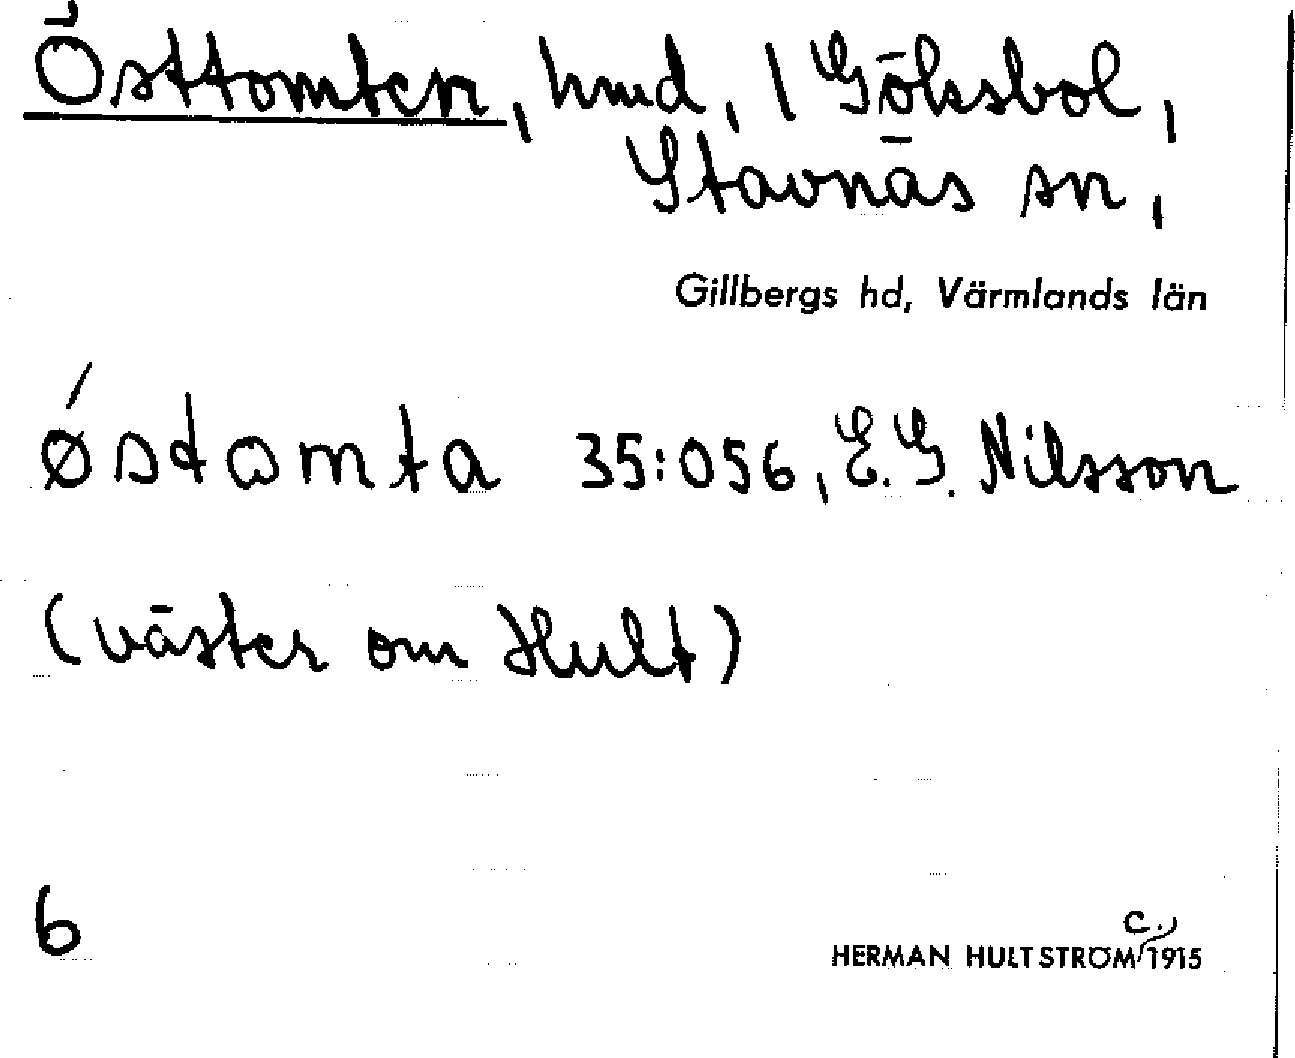 Östtomten, hmd, 1 Göksbol,
Stavnäs sn,
Gillbergs hd, Värmlands län
ǿstɷmta 35:056, E. G. Nilsson
(väster om Hult)
6
c.,
HERMAN HULTSTRÖM 1915